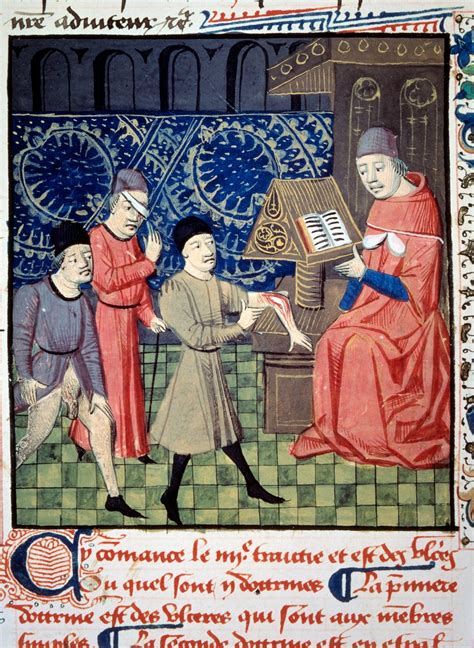 nre adiuteur
Cy comance le iiij^e. traictie et est des vlceres
Ou quel sont ij doctrines ¶ La p̃miere
doctrine est des vlceres qui sont aux mẽbres
simples ¶ La seconde doctrine est en